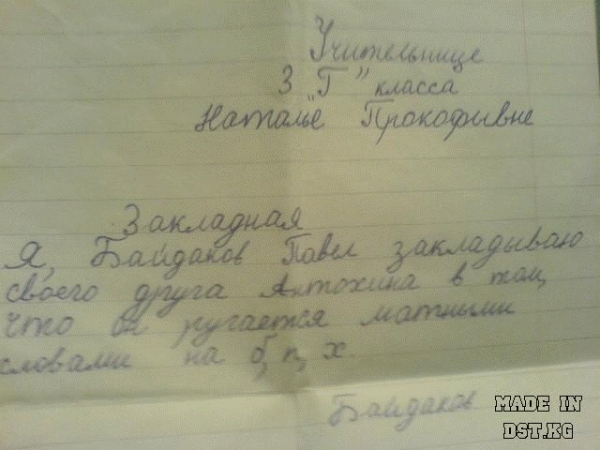 Учительнице
3 "Г" класса
Наталье Прокофывне
Закладная
Я, Байдаков Павел закладываю
своего друга Антохина в том,
что он ругается матными
словами на б, п, х.
Байдаков
MADE IN
DST.KG